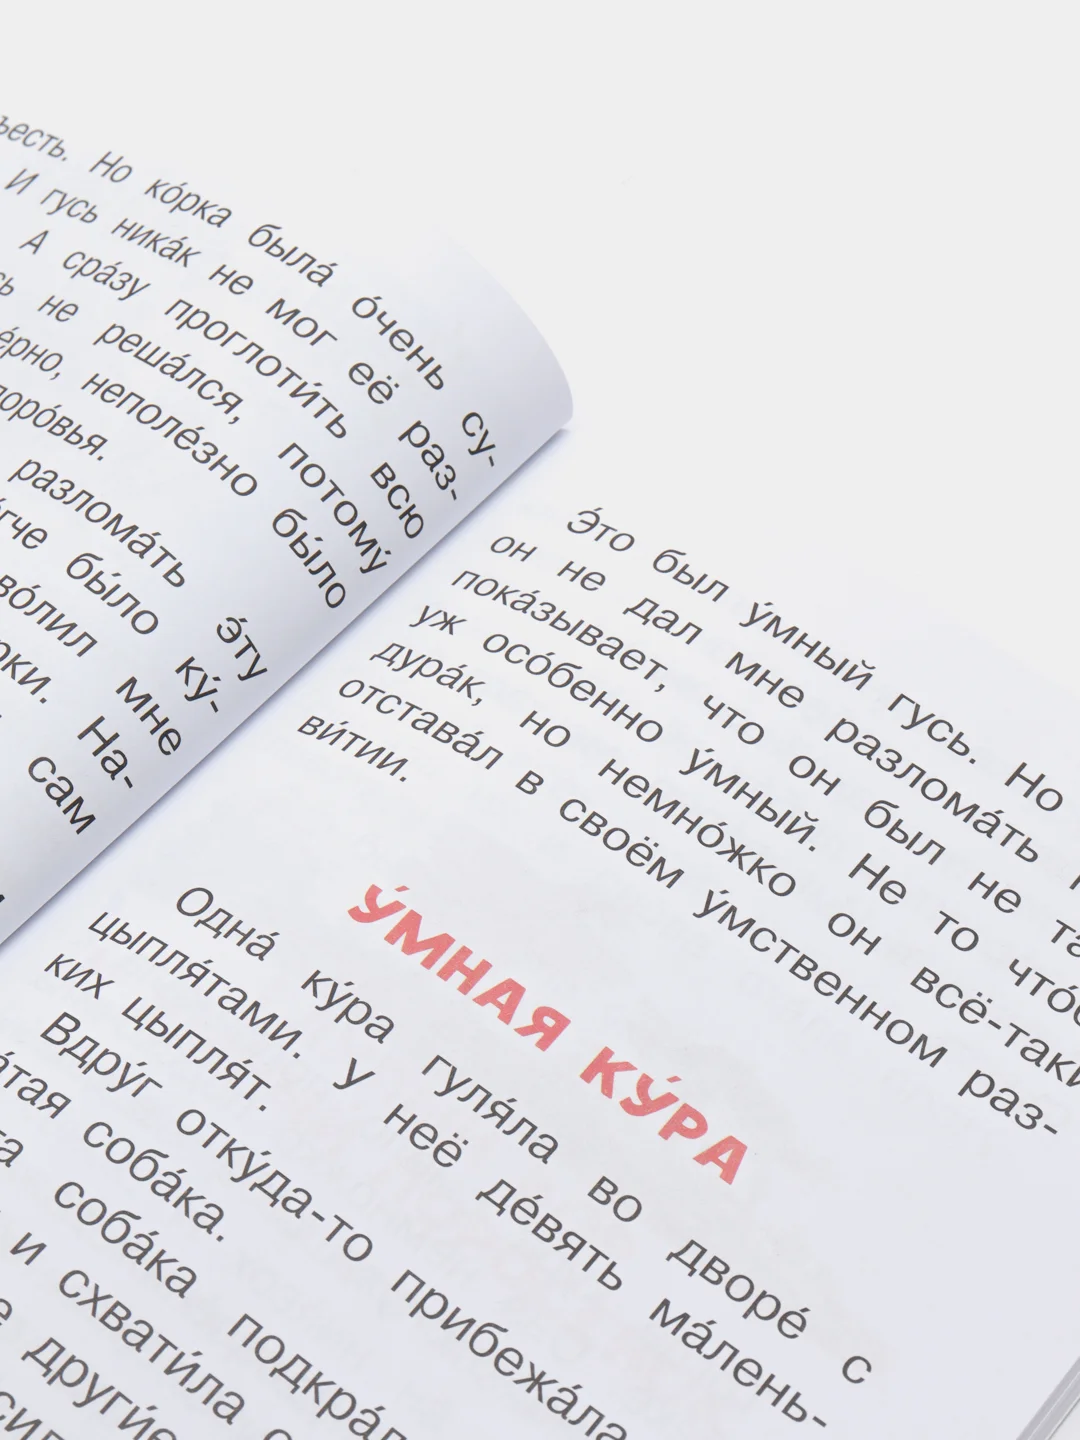 Но ко́рка была́ о́чень су-
И гусь ника́к не мог её раз-
А сра́зу проглоти́ть всю
не реша́лся, потому́
неполе́зно бы́ло
разлома́ть э́ту
бы́ло ку́-
мне
На-
сам
Э́то был у́мный гусь. Но
он не дал мне разлома́ть
пока́зывает, что он был не
уж осо́бенно у́мный. Не то
дура́к, но немно́жко он всё-таки
отстава́л в своём у́мственном раз-
ви́тии.
У́МНАЯ КУ́РА
Одна́ ку́ра гуля́ла во дворе́ с
цыпля́тами. У неё де́вять ма́лень-
ких цыпля́т.
Вдру́г отку́да-то прибежа́ла
соба́ка.
соба́ка
и схвати́ла